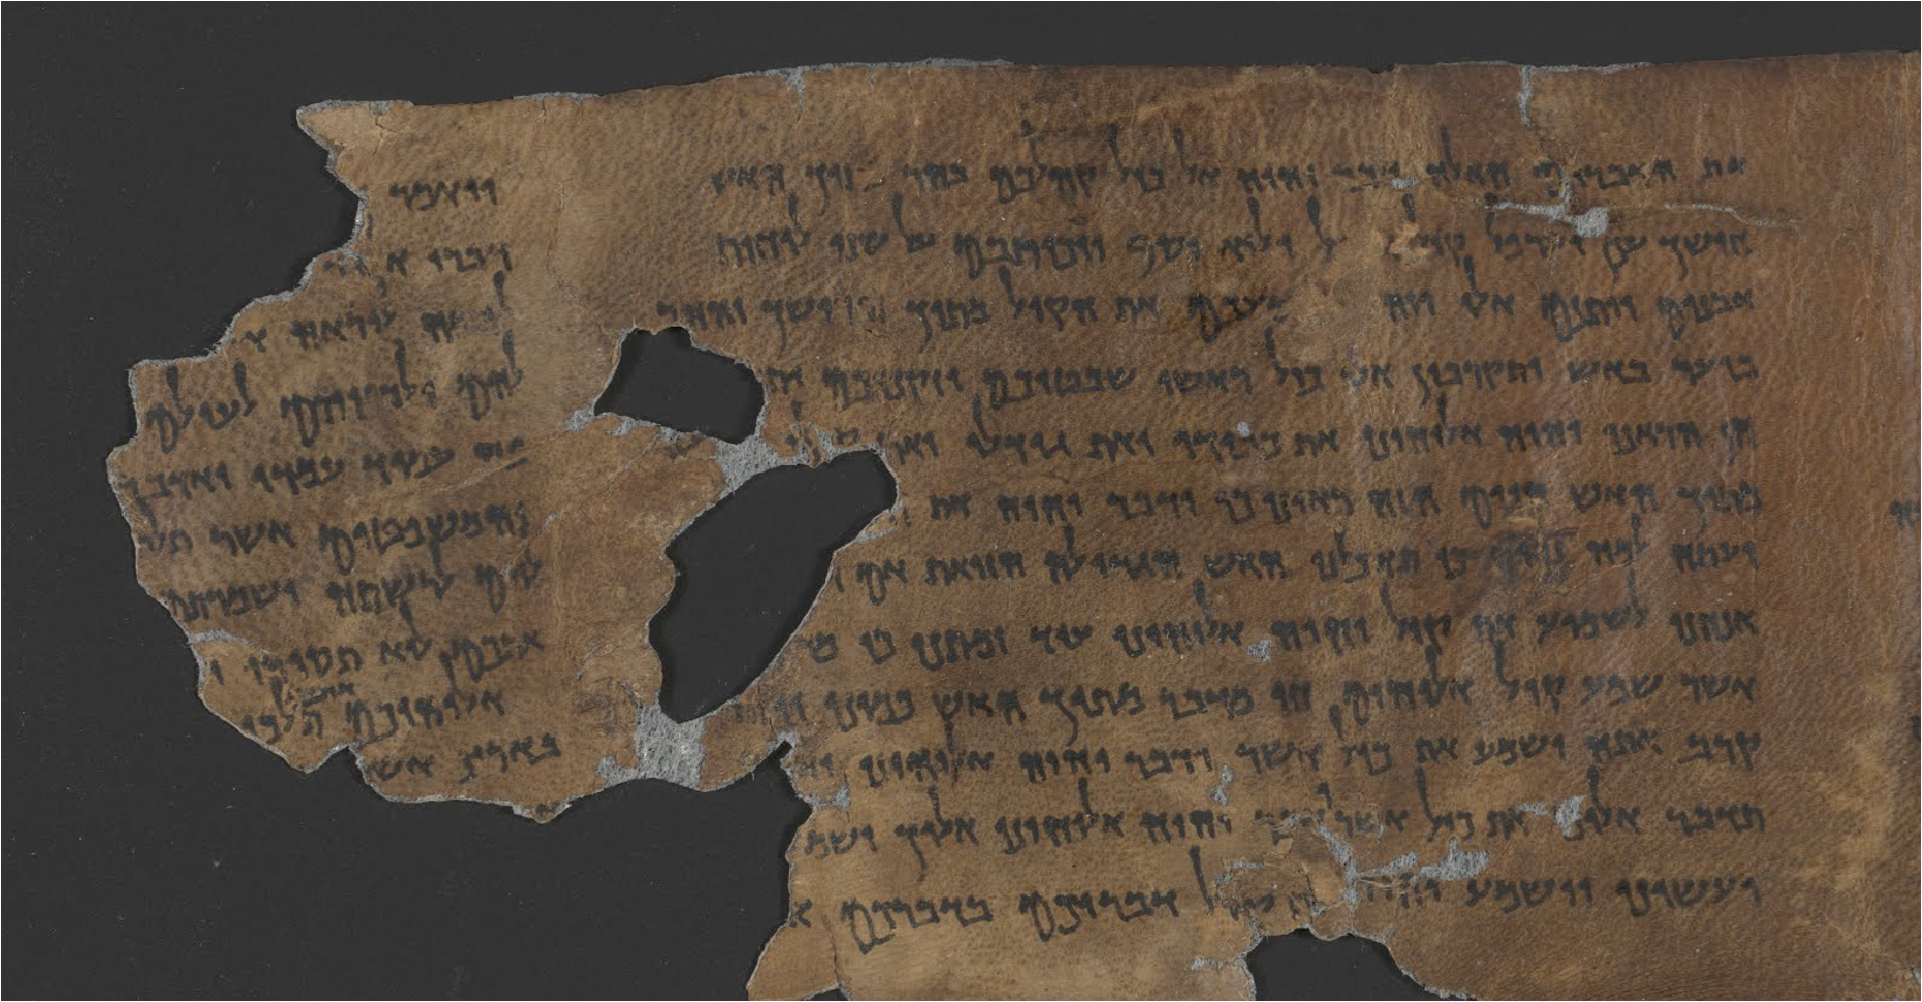 את הדברים האלה דבר יהוה אל כול קהלכם בהר האש
חושך ענן וערפל ולוא יסף ויכתובם על שני לוחות
אבנים ויתנם אלי את הקול מתוך החושך וההר
בוער באש ותקרבון אלי כול ראשי שבטיכם וזקניכם
הן הראנו יהוה אלוהינו את כבודו ואת גודלו
מתוך האש היום הזה ראינו כי ידבר יהוה את
ועתה למה נמות כי תאכלנו האש הגדולה הזואת אם
אנחנו לשמוע את קול יהוה אלוהינו עוד ומתנו כי מי
אשר שמע קול אלוהים חי מדבר מתוך האש כמונו
קרב אתה ושמע את כול אשר ידבר יהוה אלוהינו
תדבר אלינו את כול אשר ידבר יהוה אלוהינו אליך ושמ
ועשינו וישמע יהוה קול דבריכם בדברכם א
ויאמר
דברו
ליראה
להם ולבניהם לעולם
עמוד עמדי ואדבר
והמשפטים אשר
להם לרשתה ושמרתם
אתכם לא תסורו
אלוהיכם תלכו
בארץ אשר